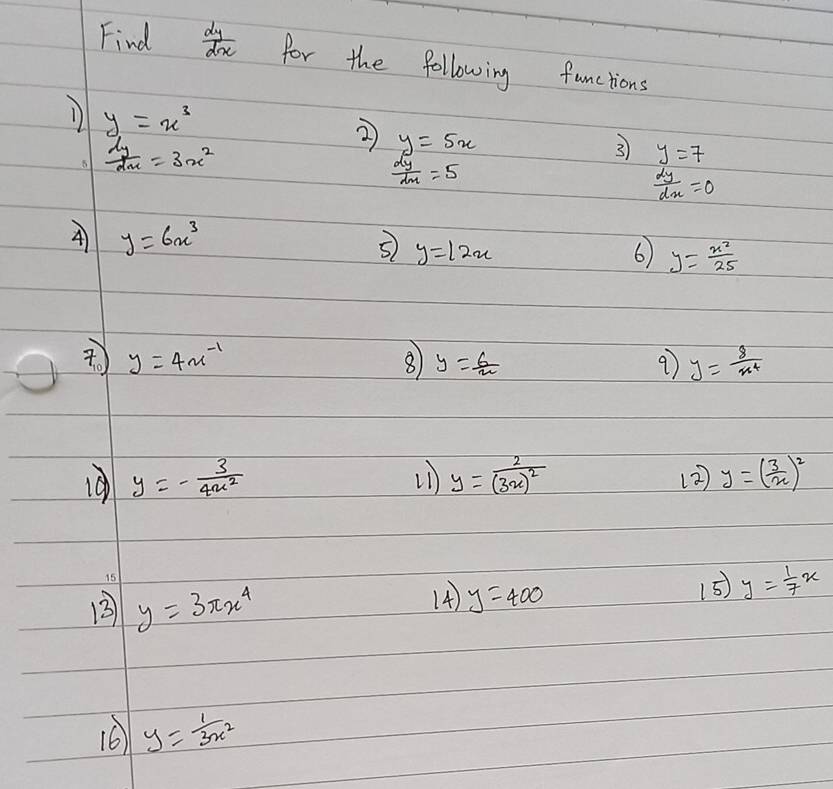 Find dy/dx for the following functions
1) y = x³ 2) y = 5x 3) y = 7
dy/dx = 3x² dy/dx = 5 dy/dx = 0
4) y = 6x³ 5) y = 12x 6) y = x²/25
7) y = 4x⁻¹ 8) y = 6/x 9) y = 8/x⁴
10) y = - 3/4x² 11) y = 2/(3x)² 12) y = (3/x)²
13) y = 3πx⁴ 14) y = 400 15) y = 1/7 x
16) y = 1/3x²